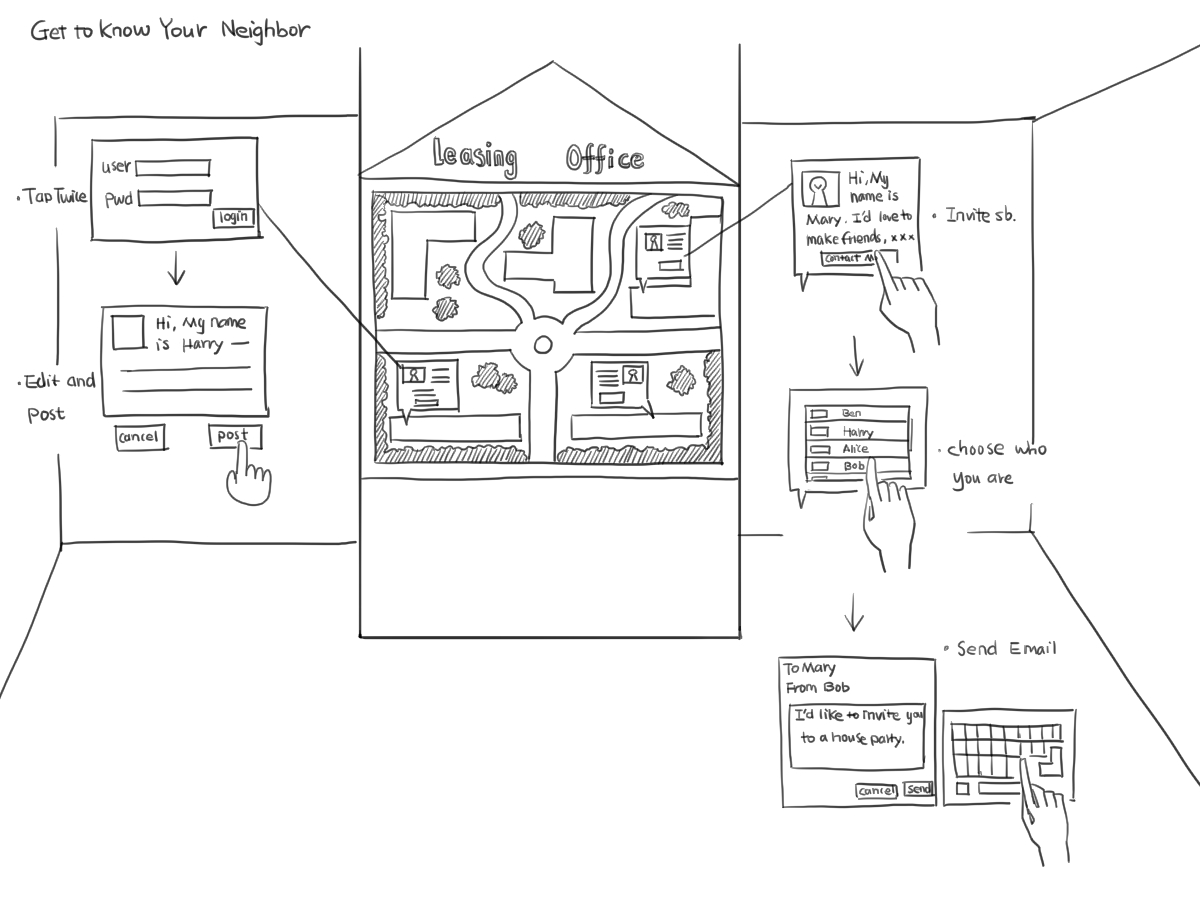 Get to Know Your Neighbor
Leasing Office
user
Pwd
login
• Tap Twice
Hi, My name
is Harry —
• Edit and
Post
cancel
post
Hi, My
name is
Mary. I'd love to
make friends, xxx
Contact M
• Invite sb.
Ben
Harry
Alice
Bob
• choose who
you are
• Send Email
To Mary
From Bob
I'd like to invite you
to a house party.
cancel
send